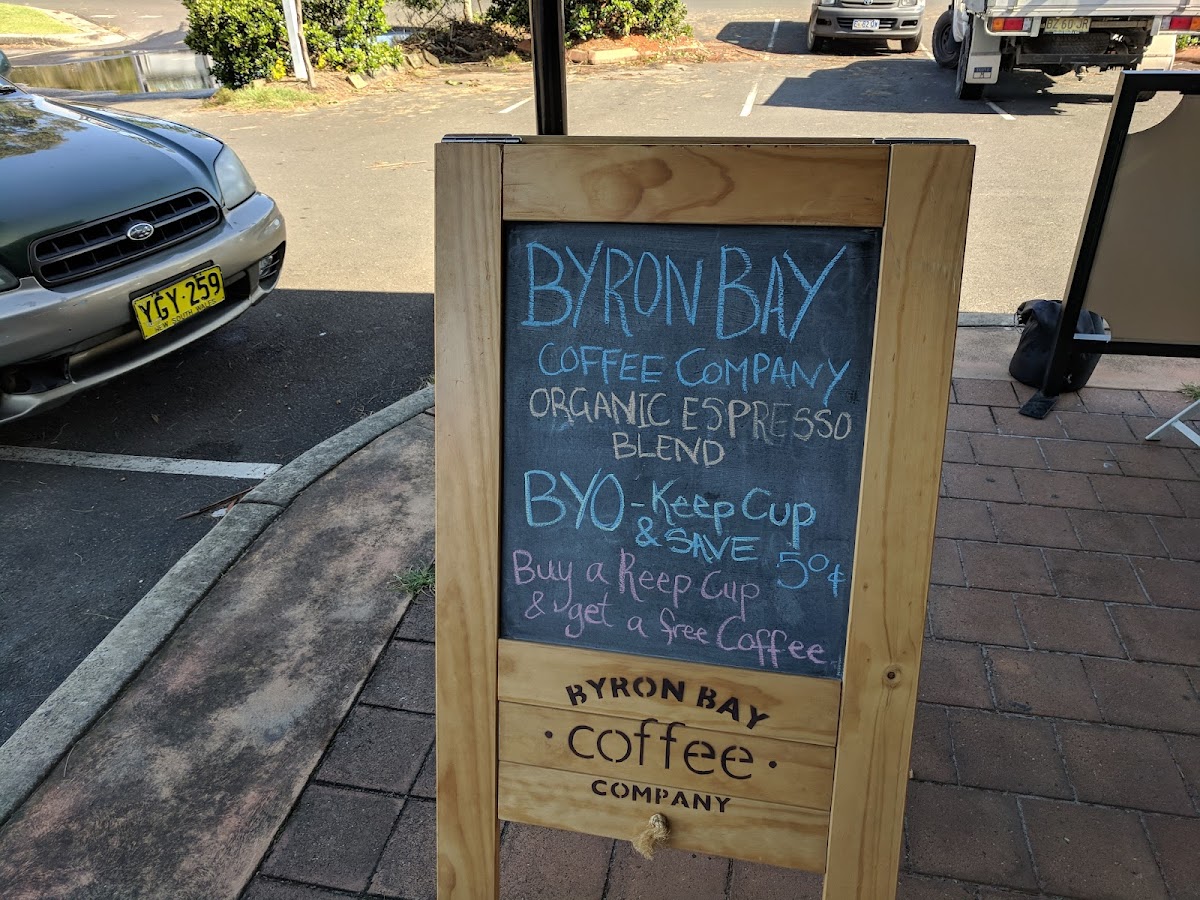 BYRON BAY
COFFEE COMPANY
ORGANIC ESPRESSO
BLEND
BYO - Keep Cup
& SAVE 50¢
Buy a Keep Cup
& get a free Coffee
BYRON BAY
• coffee •
COMPANY
YGY·259
NEW SOUTH WALES